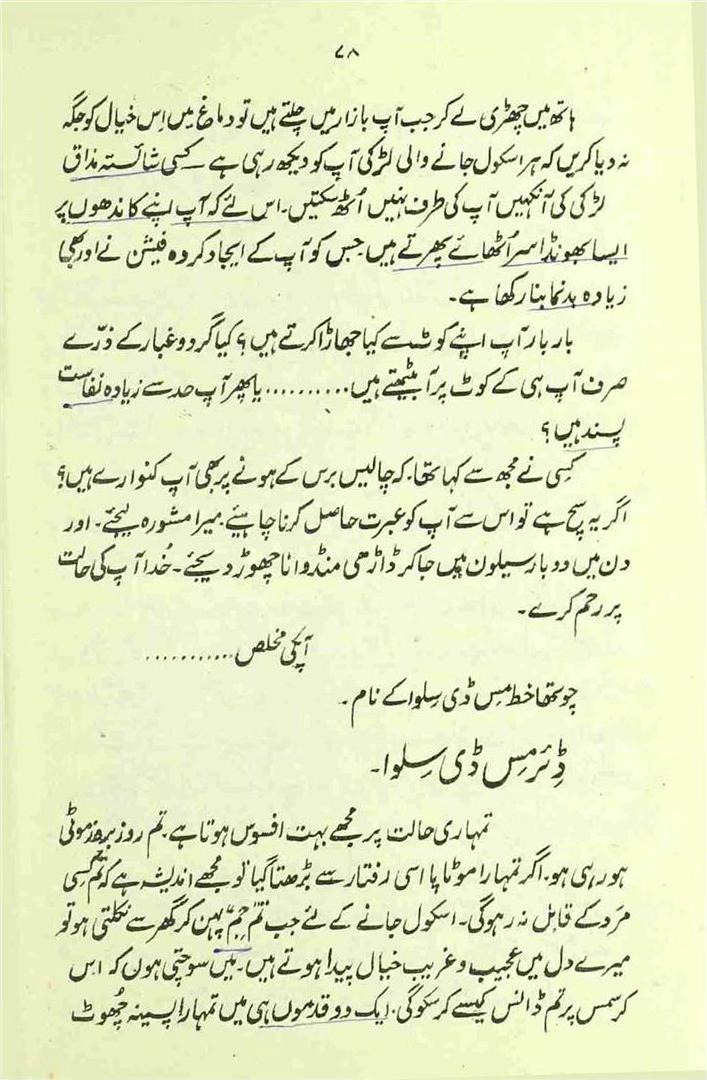 ۷۸
ہاتھ میں چھڑی لے کر جب آپ بازار میں چلتے ہیں تو دماغ میں اِس خیال کو جگہ
نہ دیا کریں کہ ہر اسکول جانے والی لڑکی آپ کو دیکھ رہی ہے ــ کسی شائستہ مذاق
لڑکی کی آنکھیں آپ کی طرف نہیں اُٹھ سکتیں۔ اس لئے کہ آپ اپنے کاندھوں پر
ایسا بھونڈا سر اُٹھائے پھرتے ہیں۔ جس کو آپ کے ایجاد کردہ فیشن نے اور بھی
زیادہ بدنما بنا رکھا ہے۔
بار بار آپ اپنے کوٹ سے کیا جھاڑا کرتے ہیں؟ کیا گرد و غبار کے ذرّے
صرف آپ ہی کے کوٹ پر آبیٹھتے ہیں .......... یا پھر آپ حد سے زیادہ نفاست
پسند ہیں؟
کسِی نے مجھ سے کہا تھا۔ کہ چالیس برس کے ہونے پر بھی آپ کنوارے ہیں؟
اگر یہ سچ ہے تو اس سے آپ کو عبرت حاصل کرنا چاہیئے۔ میرا مشورہ لیجئے۔ اور
دن میں دو بار سیلون میں جا کر ڈاڑھی منڈوانا چھوڑ دیجئے۔ خُدا آپ کی حالت
پر رحم کرے۔
آپکی مخلص ...........
چوتھا خط مِس ڈی سِلوا کے نام۔
ڈئر مِس ڈی سِلوا۔
تمہاری حالت پر مجھے بہت افسوس ہوتا ہے۔ تم روز بروز موٹی
ہو رہی ہو۔ اگر تمہارا موٹاپا اسی رفتار سے بڑھتا گیا تو مجھے اندیشہ ہے کہ تم کسِی
مَرد کے قابل نہ رہوگی۔ اسکول جانے کے لئے جب تم ”جم“ پہن کر گھر سے نکلتی ہو تو
میرے دل میں عجیب و غریب خیال پیدا ہوتے ہیں۔ میں سوچتی ہوں کہ اس
کرسمس پر تم ڈانس کیسے کر سکو گی۔ ایک دو قدموں ہی میں تمہارا پسینہ چُھوٹ